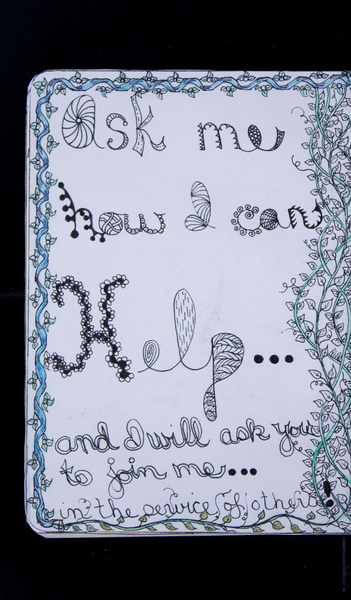 Ask me
how I can
Help...
and I will ask you
to join me...
in the service of others!